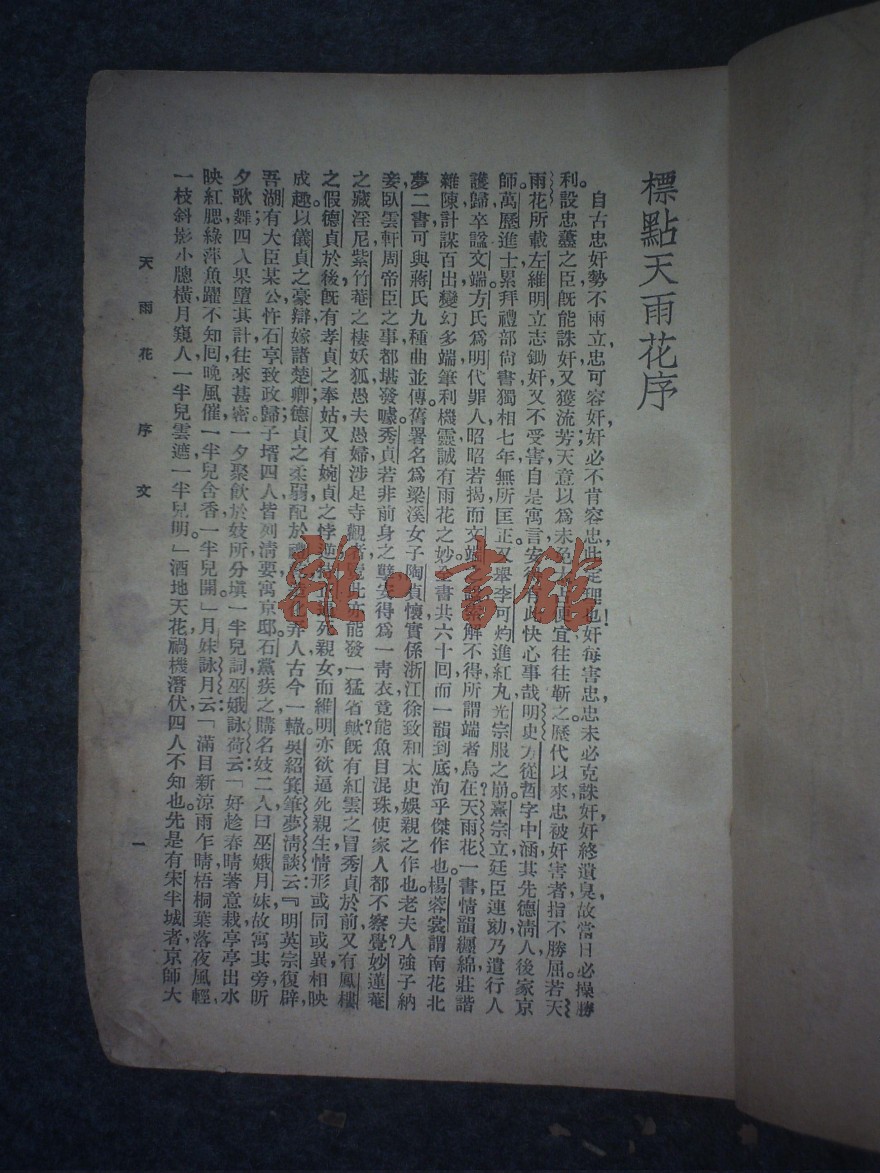 標點天雨花序
自古忠奸勢不兩立忠可容奸奸必不肯容忠此定理也奸每害忠忠未必克誅奸奸終遺臭故當日必操勝
利設忠藎之臣既能誅奸又獲流芳天意以為未免便宜往往靳之歷代以來忠被奸害者指不勝屈若天
雨花所載左維明立志鋤奸又不受害自是寓言安得有此快心事哉明史方從哲字中涵其先德清人後家京
師萬歷進士累拜禮部尚書獨相七年無所匡正又舉李可灼進紅丸光宗服之崩熹宗立廷臣連劾乃遣行人
護歸卒諡文端方氏為明代罪人昭昭若揭而文端解不得所謂端者烏在天雨花一書情韻纏綿莊諧
雜陳計謀百出變幻多端筆利機靈誠有雨花之妙書共六十回而一韻到底洵乎傑作也楊蓉裳謂南花北
夢二書可與蔣氏九種曲並傳舊署名為梁溪女子陶貞懷實係浙江徐致和太史娛親之作也老夫人強子納
妾臥雲軒周帝臣之事都堪發噱秀貞若非前身之孽安得為一靑衣竟能魚目混珠使家人都不察覺妙蓮菴
之藏淫尼紫竹菴之棲妖狐愚夫愚婦涉足寺觀者覽此亦能發一猛省歟既有紅雲之冒秀貞於前又有鳳樓
之假德貞於後旣有孝貞之奉姑又有婉貞之悖逆逼死親女而維明亦欲逼死親生情形或同或異相映
成趣以儀貞之豪辯嫁諸楚卿德貞之柔弱配於禮化弄人古今一轍吳紹箕筆夢淸談云『明英宗復辟
吾湖有大臣某公忤石亭致政歸子壻四人皆列淸要寓京邸石黨疾之購名妓二人曰巫娥月妹故寓其旁昕
夕歌舞四人果墮其計往來甚密一夕聚飲於妓所分填一半兒詞巫娥詠荷云「好趁春晴著意栽亭亭出水
映紅腮綠萍魚躍不知囘晚風催一半兒含香一半兒開」月妹詠月云「滿目新凉雨乍晴梧桐葉落夜風輕
一枝斜影小牕橫月窺人一半兒雲遮一半兒明」酒地天花禍機潛伏四人不知也先是有宋半城者京師大
天雨花 序文 一
雜·書館